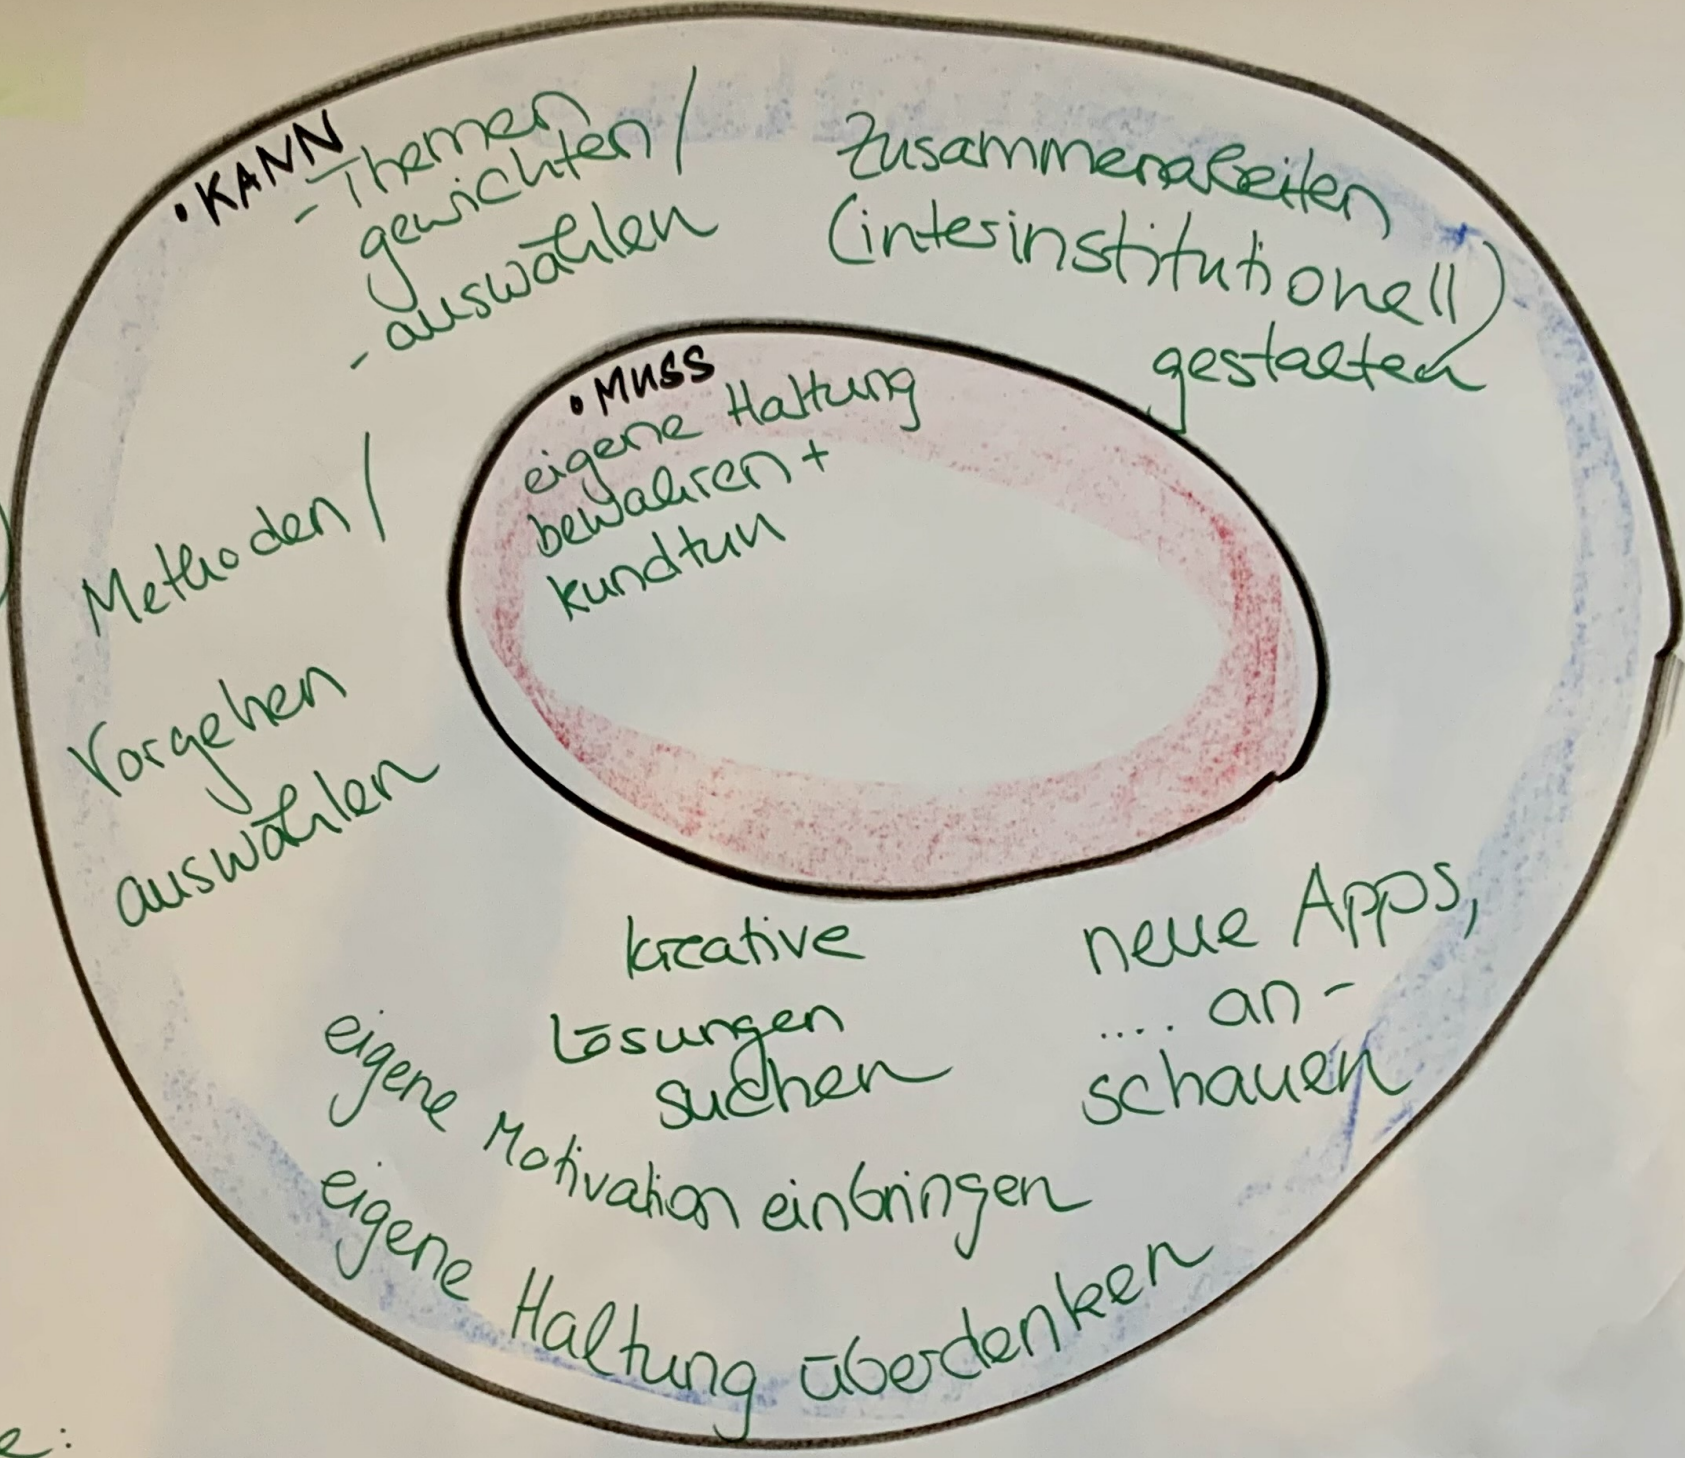 • KANN
- Themen
gewichten /
- auswählen
Zusammenarbeiten
(interinstitutionell)
gestalten
• MUSS
eigene Haltung
bewahren +
kundtun
Methoden /
Vorgehen
auswählen
kreative
Lösungen
suchen
neue Apps,
.... an-
schauen
eigene Motivation einbringen
eigene Haltung überdenken
e: